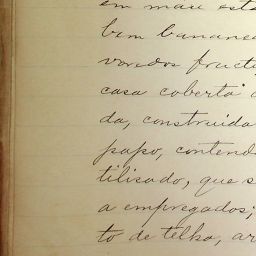 em mau esta
bem bananea
voredos fructi
casa coberta d
da, construida
papo, contend
tilisado, que s
a empregados;
to de telha, ar